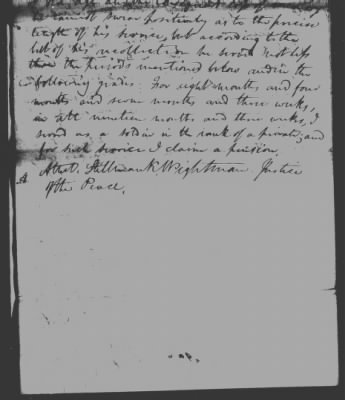 he cannot swear positively as to the precise
length of his service, but according to the
best of his recollection he served not less
than the periods mentioned below and in the
following grades: For eight months and four
months and seven months and three weeks,
in all nineteen months and three weeks, I
served as a soldier in the rank of a private; and
for such service I claim a pension.
Attest. Stillman K Wightman Justice
of the Peace.